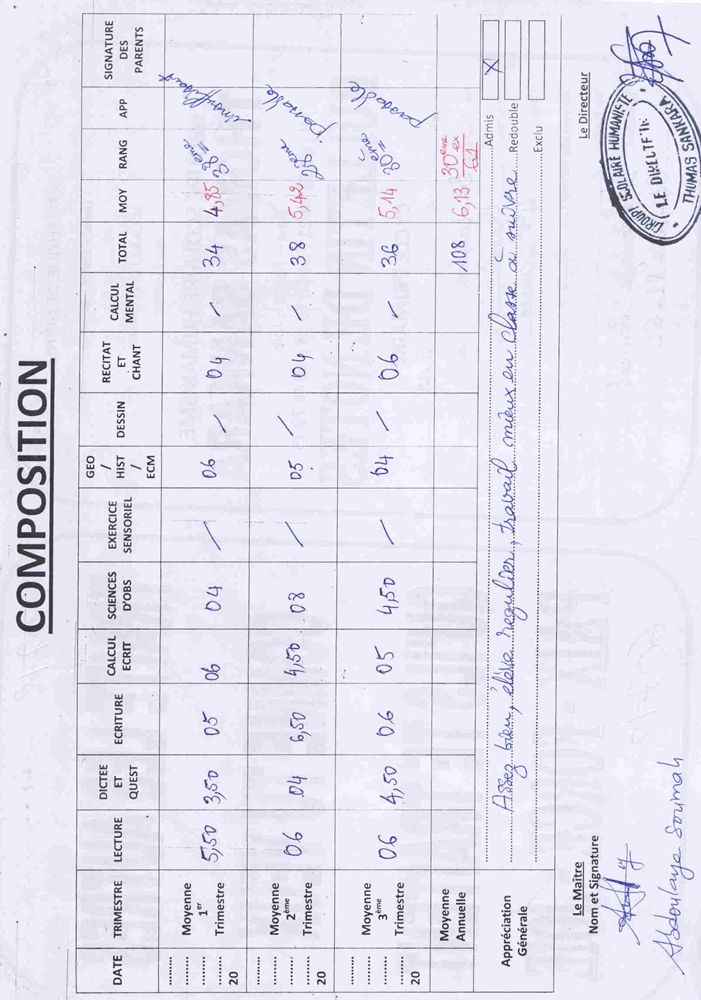 COMPOSITION
DATE TRIMESTRE LECTURE DICTEE ET QUEST ECRITURE CALCUL ECRIT SCIENCES D'OBS EXERCICE SENSORIEL GEO / HIST / ECM DESSIN RECITAT ET CHANT CALCUL MENTAL TOTAL MOY RANG APP SIGNATURE DES PARENTS
.......... ........ 20 Moyenne 1er Trimestre 5,50 3,50 05 06 04 / 06 / 04 / 34 4,85 38ème insuffisant
.......... ........ 20 Moyenne 2ème Trimestre 06 04 6,50 4,50 08 / 05 / 04 / 38 5,42 28ème passable
.......... ........ 20 Moyenne 3ème Trimestre 06 4,50 06 05 4,50 / 04 / 06 / 36 5,14 30ème passable
Moyenne Annuelle 108 6,13 30ème ex
61
Appréciation Générale
Admis X
Assez bien, élève regulier, travail mieux en classe à suivre Redouble
Exclu
Le Maître
Nom et Signature
Le Directeur
Abdoulaye Soumah
GROUP SCOLAIRE HUMANISTE
LE DIRECTEUR
THOMAS SANKARA